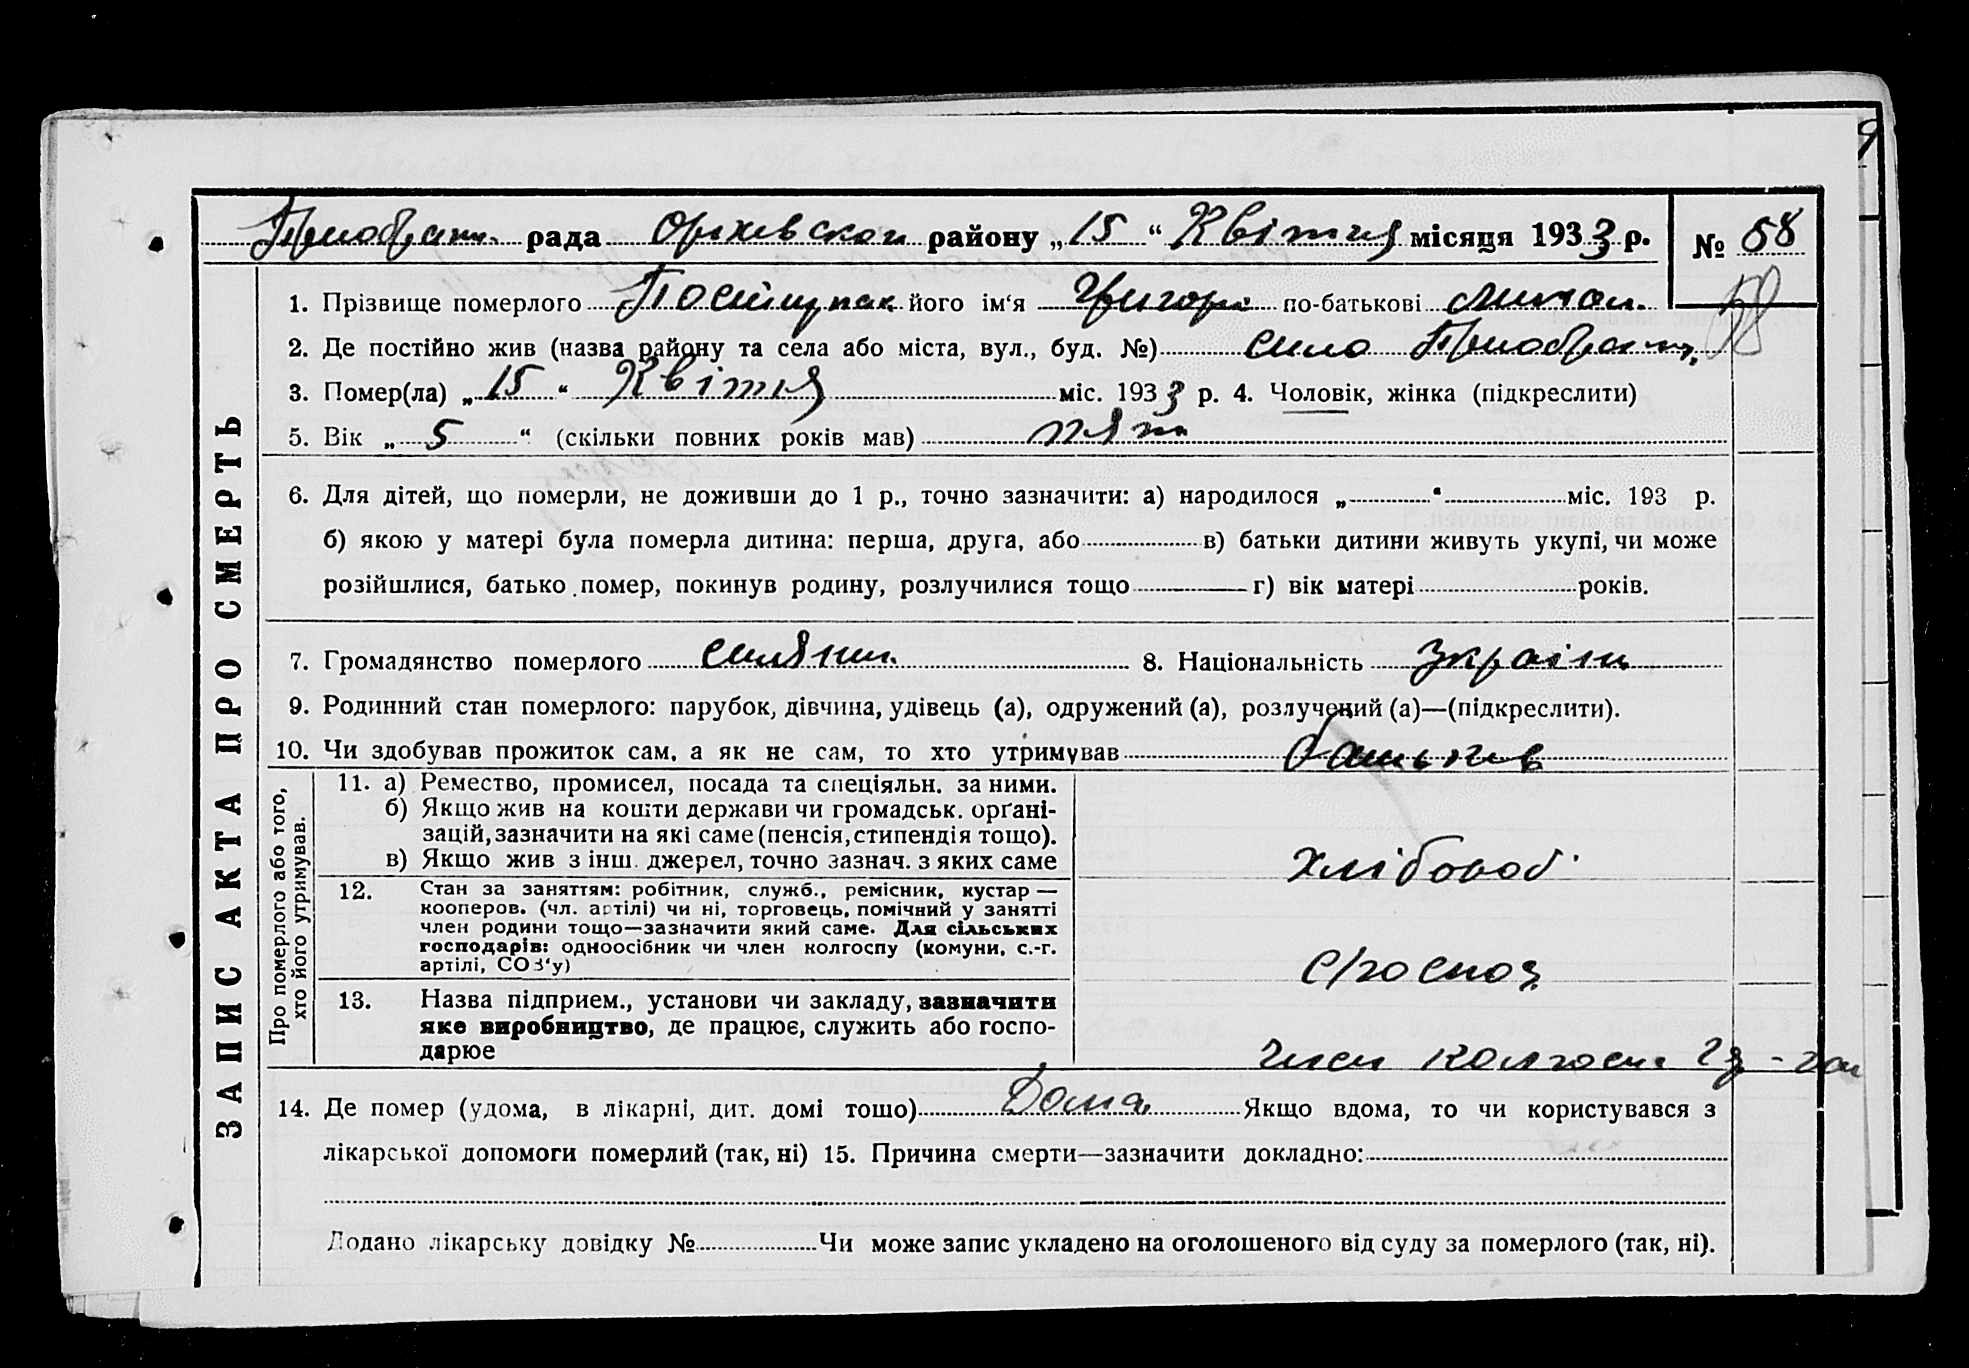 Приображен. рада Оріхівской району „15“ Квітня місяця 1933 р. № 58
58
1. Прізвище померлого його ім‘я Григорі по-батькові
2. Де постійно жив (назва району та села або міста, вул., буд. №) село Приображен.
3. Помер(ла) „15“ Квітня міс. 1933 р. 4. Чоловік, жінка (підкреслити)
5. Вік „5“ (скільки повних років мав) пят
6. Для дітей, що померли, не доживши до 1 р., точно зазначити: а) народилося „ “ міс. 193 р.
б) якою у матері була померла дитина: перша, друга, або в) батьки дитини живуть укупі, чи може
розійшлися, батько помер, покинув родину, розлучилися тощо г) вік матері років.
7. Громадянство померлого селянин. 8. Національність україн
9. Родинний стан померлого: парубок, дівчина, удівець (а), одружений (а), розлучений (а)—(підкреслити).
10. Чи здобував прожиток сам, а як не сам, то хто утримував батьків
ЗАПИС АКТА ПРО СМЕРТЬ
Про померлого або того,
хто його утримував.
11. а) Ремество, промисел, посада та спеціяльн. за ними.
б) Якщо жив на кошти держави чи громадськ. орґані-
зацій, зазначити на які саме (пенсія, стипендія тощо).
в) Якщо жив з інш. джерел, точно зазнач. з яких саме
хлібороб
12. Стан за заняттям: робітник, служб., ремісник, кустар —
кооперов. (чл. артілі) чи ні, торговець, помічний у занятті
член родини тощо—зазначити який саме. Для сільських
господарів: одноосібник чи член колгоспу (комуни, с.-г.
артілі, СОЗ‘у)
13. Назва підприєм., установи чи закладу, зазначити
яке виробництво, де працює, служить або госпо-
дарює
член колгосп
14. Де помер (удома, в лікарні, дит. домі тошо) Дома Якщо вдома, то чи користувався з
лікарської допомоги померлий (так, ні) 15. Причина смерти—зазначити докладно:
Додано лікарську довідку № Чи може запис укладено на оголошеного від суду за померлого (так, ні).